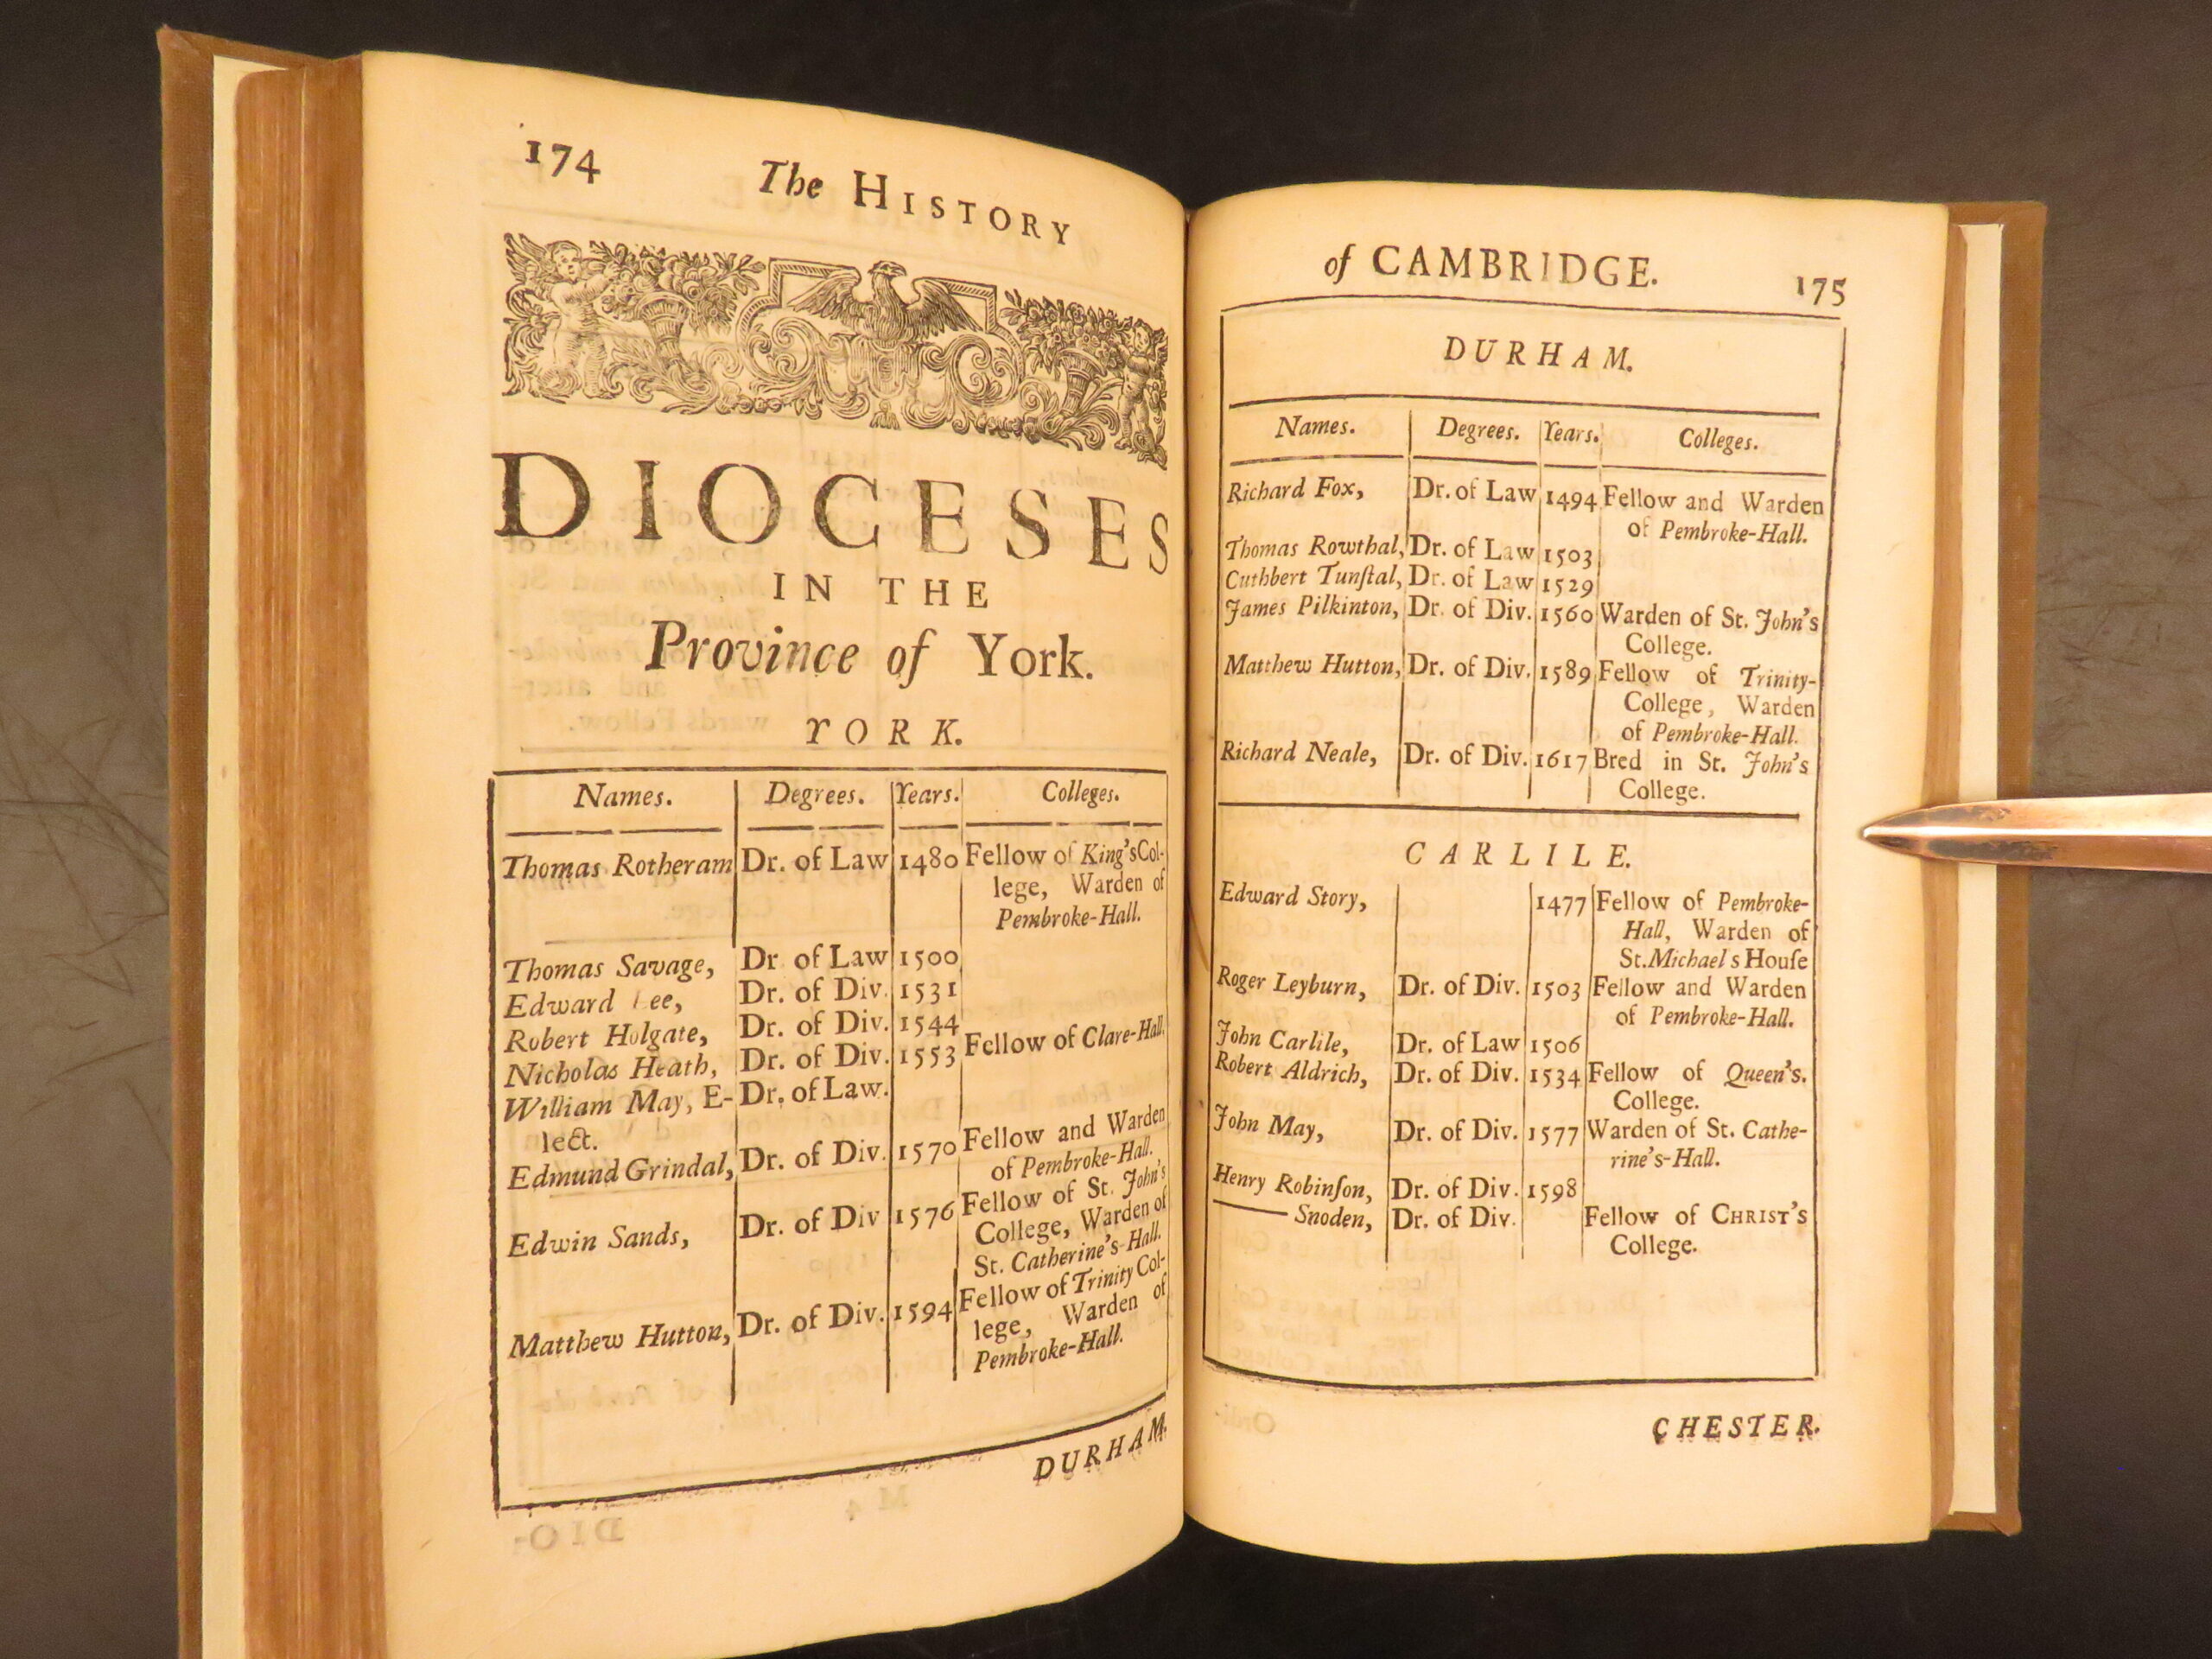 174 The HISTORY
DIOCESES
IN THE
Province of York.
YORK.
Names. Degrees. Years. Colleges.
Thomas Rotheram Dr. of Law 1480 Fellow of King's Col-
lege, Warden of
Pembroke-Hall.
Thomas Savage, Dr of Law 1500
Edward Lee, Dr. of Div. 1531
Robert Holgate, Dr. of Div. 1544
Nicholas Heath, Dr. of Div. 1553 Fellow of Clare-Hall.
William May, E- Dr. of Law.
lect.
Edmund Grindal, Dr. of Div. 1570 Fellow and Warden
of Pembroke-Hall.
Edwin Sands, Dr. of Div 1576 Fellow of St. John's
College, Warden of
St. Catherine's-Hall.
Matthew Hutton, Dr. of Div. 1594 Fellow of Trinity Col-
lege, Warden of
Pembroke-Hall.
DURHAM.
of CAMBRIDGE. 175
DURHAM.
Names. Degrees. Years. Colleges.
Richard Fox, Dr. of Law 1494 Fellow and Warden
of Pembroke-Hall.
Thomas Rowthal, Dr. of Law 1503
Cuthbert Tunſtal, Dr. of Law 1529
James Pilkinton, Dr. of Div. 1560 Warden of St. John's
College.
Matthew Hutton, Dr. of Div. 1589 Fellow of Trinity-
College, Warden
of Pembroke-Hall.
Richard Neale, Dr. of Div. 1617 Bred in St. John's
College.
CARLILE.
Edward Story, 1477 Fellow of Pembroke-
Hall, Warden of
St. Michael s Houſe
Roger Leyburn, Dr. of Div. 1503 Fellow and Warden
of Pembroke-Hall.
John Carlile, Dr. of Law 1506
Robert Aldrich, Dr. of Div. 1534 Fellow of Queen's.
College.
John May, Dr. of Div. 1577 Warden of St. Cathe-
rine's-Hall.
Henry Robinſon, Dr. of Div. 1598
—— Snoden, Dr. of Div. Fellow of CHRIST'S
College.
CHESTER.